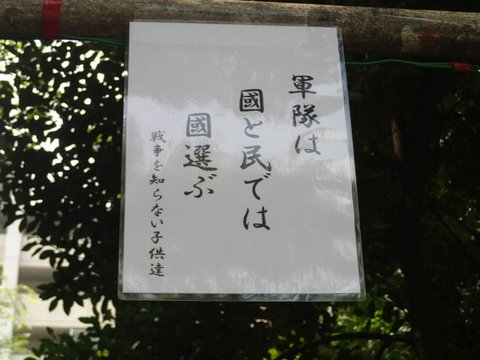 軍隊は
國と民では
國選ぶ
戦争を知らない子供達